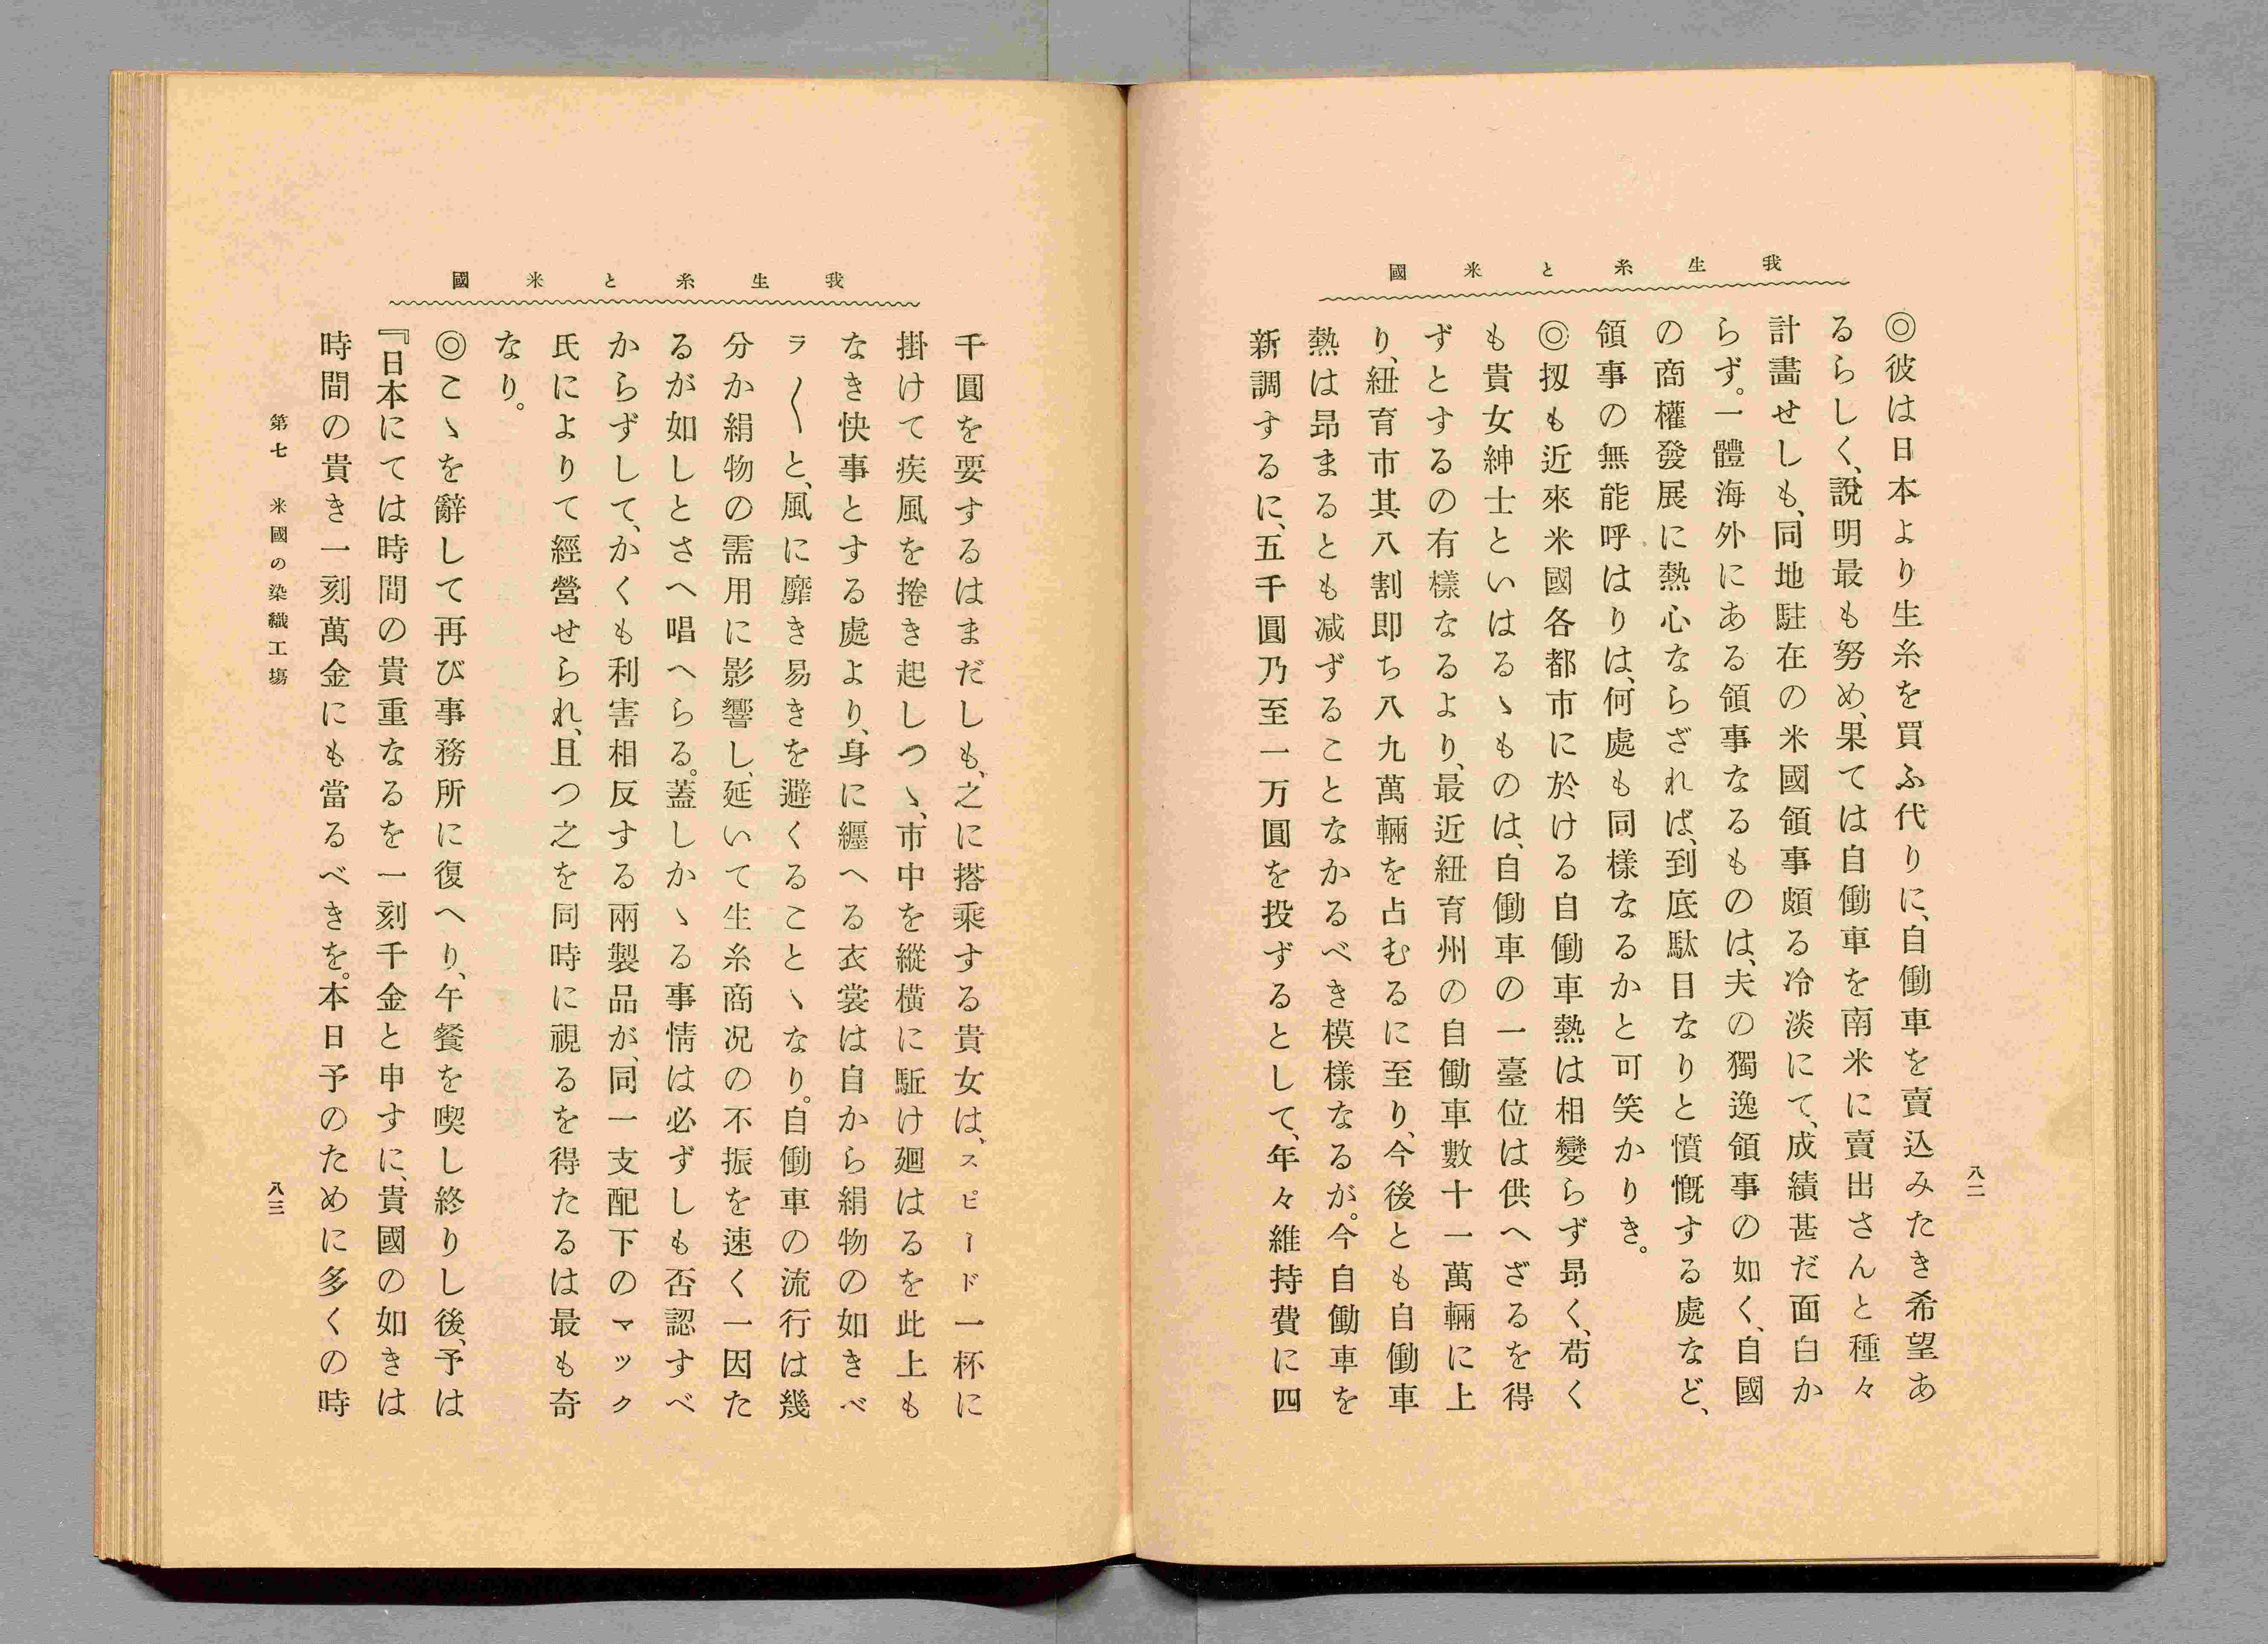 我生糸と米國
◎彼は日本より生糸を買ふ代りに、自働車を賣込みたき希望あ
るらしく、說明最も努め、果ては自働車を南米に賣出さんと種々
計畵せしも、同地駐在の米國領事頗る冷淡にて、成績甚だ面白か
らず。一體海外にある領事なるものは、夫の獨逸領事の如く、自國
の商權發展に熱心ならざれば、到底駄目なりと憤慨する處など、
領事の無能呼はりは、何處も同樣なるかと可笑かりき。
◎扨も近來米國各都市に於ける自働車熱は相變らず昂く、苟く
も貴女紳士といはるゝものは、自働車の一臺位は供へざるを得
ずとするの有樣なるより、最近紐育州の自働車數十一萬輛に上
り、紐育市其八割即ち八九萬輛を占むるに至り、今後とも自働車
熱は昂まるとも减ずることなかるべき模樣なるが。今自働車を
新調するに、五千圓乃至一万圓を投ずるとして、年々維持費に四
八二
我生糸と米國
千圓を要するはまだしも、之に搭乘する貴女は、スピード一杯に
掛けて疾風を捲き起しつゝ、市中を縱橫に駈け廻はるを此上も
なき快事とする處より、身に纒へる衣裳は自から絹物の如きべ
ラ〱と、風に靡き易きを避くることゝなり。自働車の流行は幾
分か絹物の需用に影響し、延いて生糸商况の不振を速く一因た
るが如しとさへ唱へらる。蓋しかゝる事情は必ずしも否認すべ
からずして、かくも利害相反する兩製品が、同一支配下のマック
氏によりて經營せられ、且つ之を同時に視るを得たるは最も奇
なり。
◎こゝを辭して再び事務所に復へり、午餐を喫し終りし後、予は
『日本にては時間の貴重なるを一刻千金と申すに、貴國の如きは
時間の貴き一刻萬金にも當るべきを。本日予のために多くの時
第七 米國の染織工塲
八三